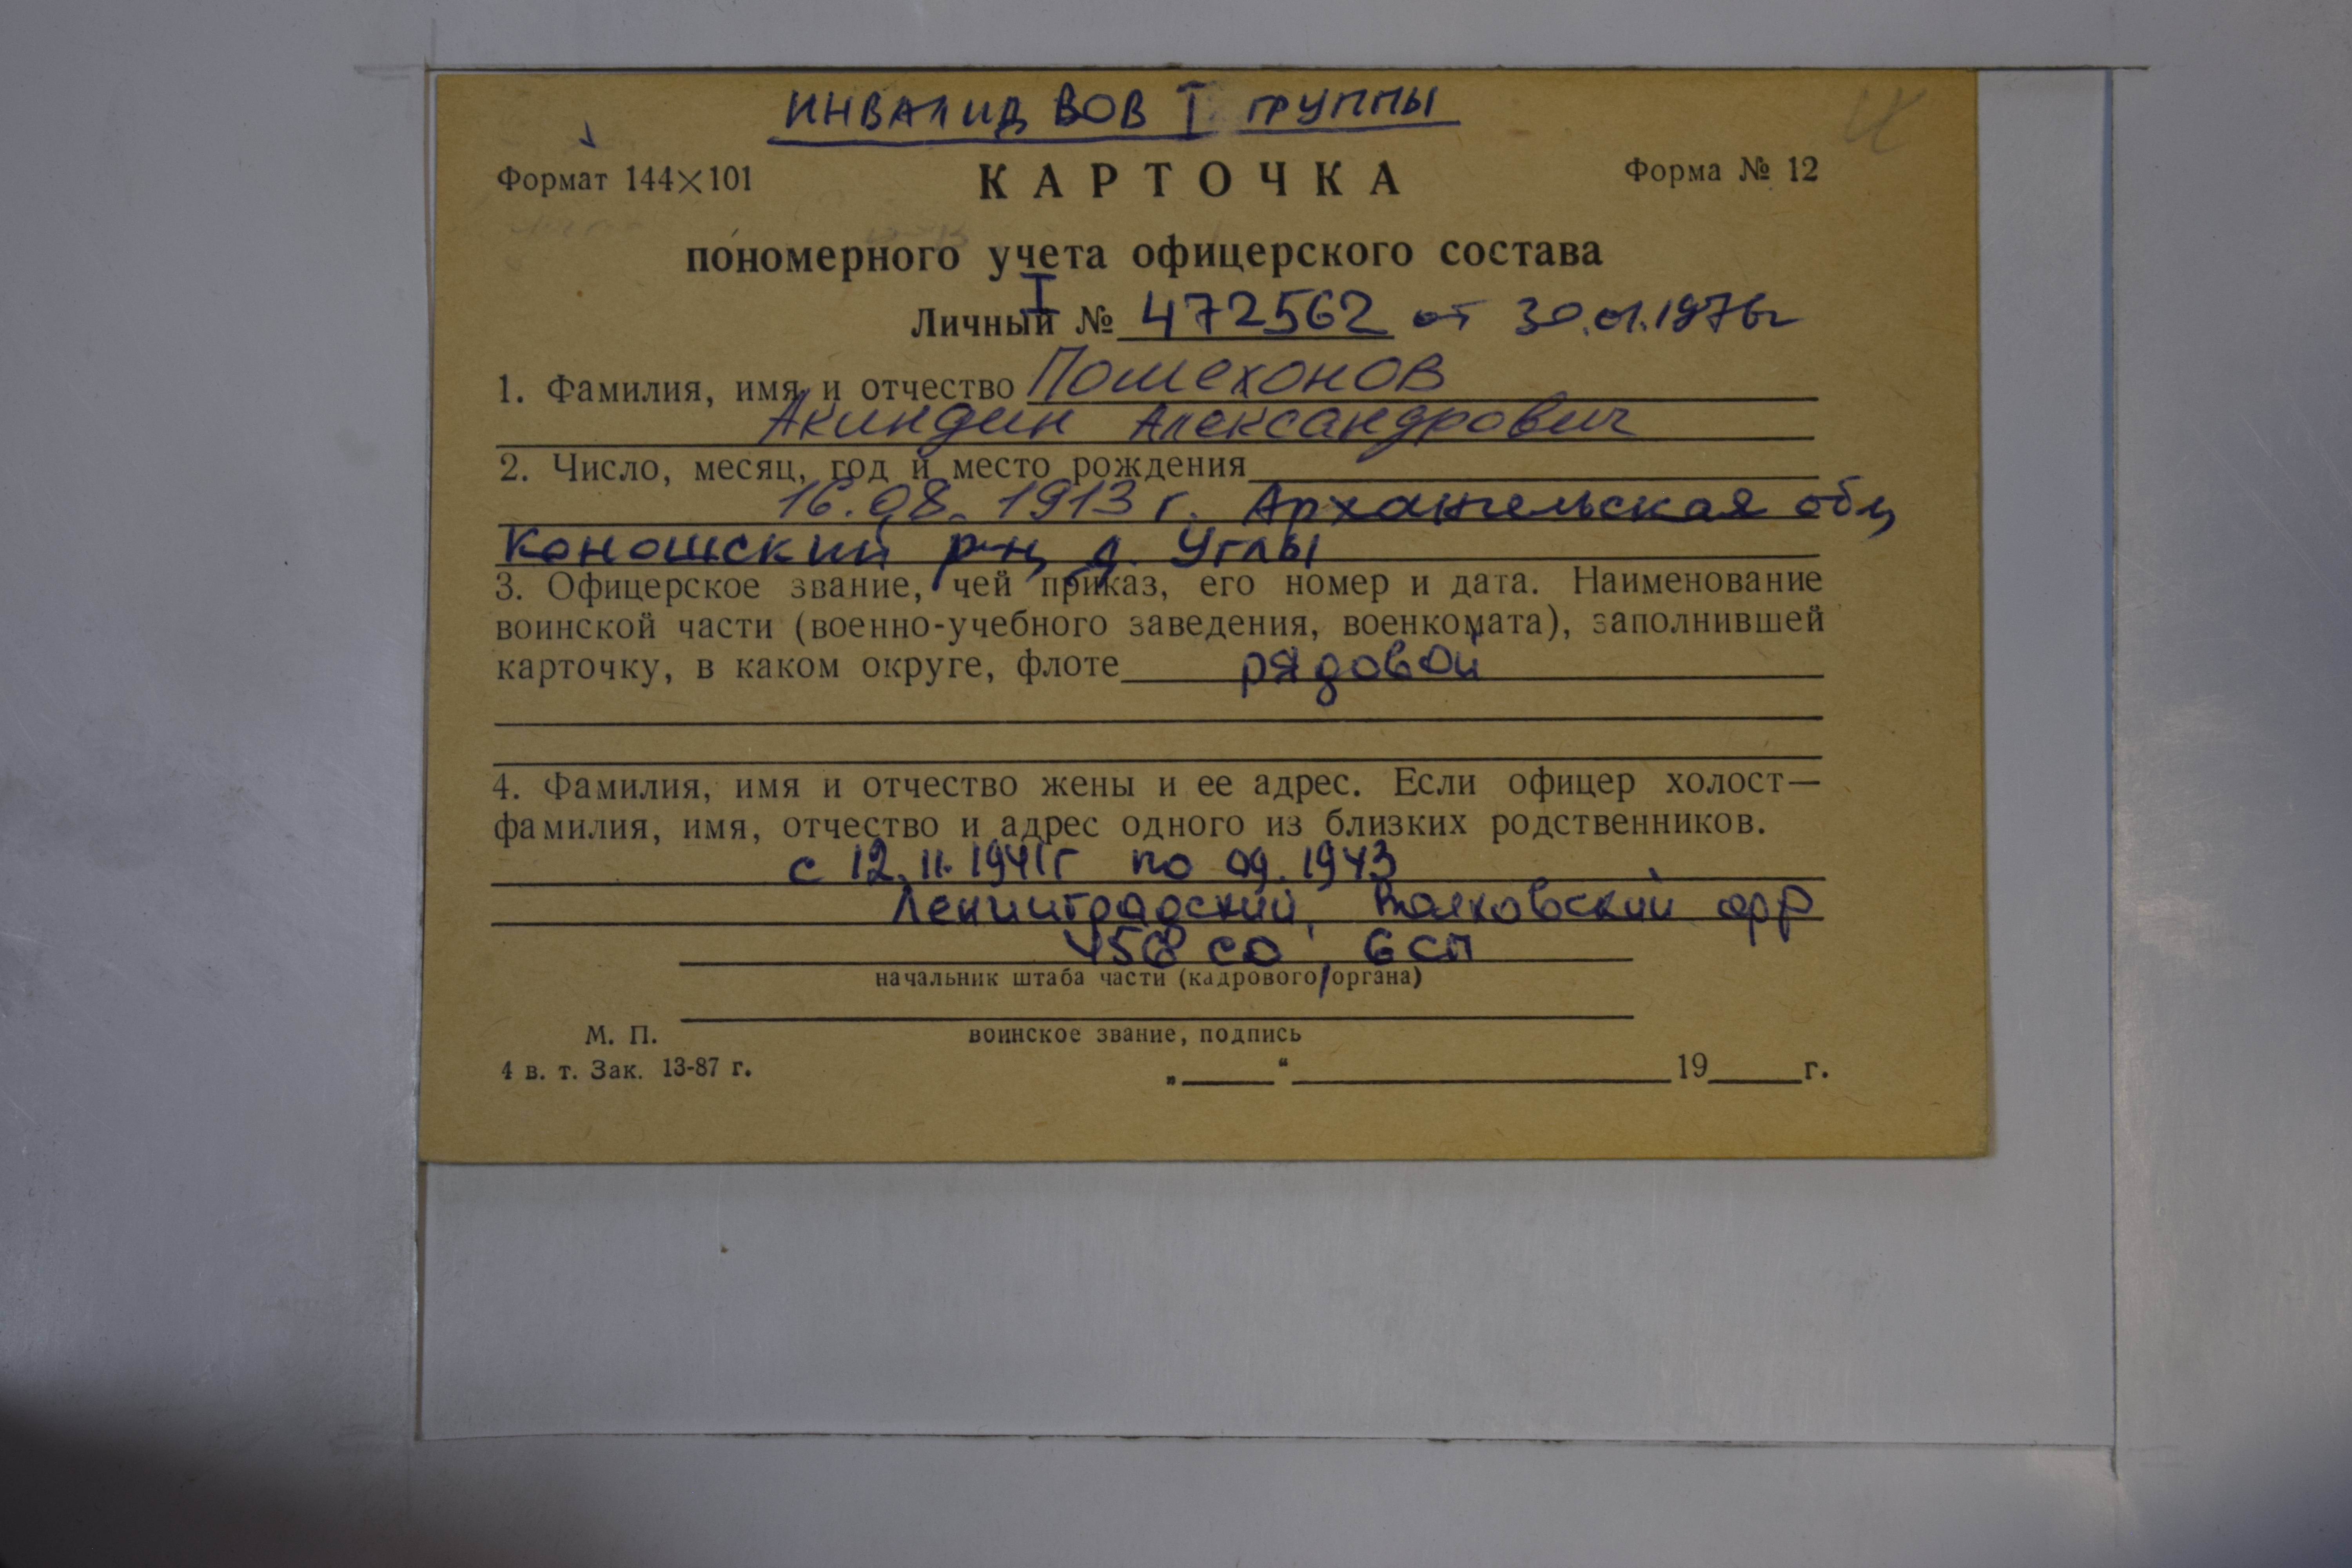 ИНВАЛИД ВОВ I ГРУППЫ
Формат 144×101 КАРТОЧКА Форма № 12
пономерного учета офицерского состава
I
Личный № 472562 от 30.01.1976г
1. Фамилия, имя и отчество Помехонов
Акиндин Александрович
2. Число, месяц, год и место рождения
16.08.1913 г. Архангельская обл,
Коношский р-н, д. Углы
3. Офицерское звание, чей приказ, его номер и дата. Наименование
воинской части (военно-учебного заведения, военкомата), заполнившей
карточку, в каком округе, флоте рядовой
4. Фамилия, имя и отчество жены и ее адрес. Если офицер холост—
фамилия, имя, отчество и адрес одного из близких родственников.
с 12.11.1941г по 09.1943
Ленинградский, Волховский фр
СД, 6 СП
начальник штаба части (кадрового органа)
М. П. воинское звание, подпись
4 в. т. Зак. 13-87 г. „ “ 19 г.